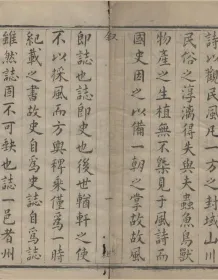 詩以觀民風凡一方之封域山川
民俗之淳漓得失與夫蟲魚鳥獸
物產之生植無不槩見于風詩而
國史因之以備一朝之掌故故風
叙
一
即誌也誌即史也後世輶軒之使
不以採風而方輿稗乘僅爲一時
紀載之書故史自爲史誌自爲誌
雖然誌固不可軼也誌一邑者州